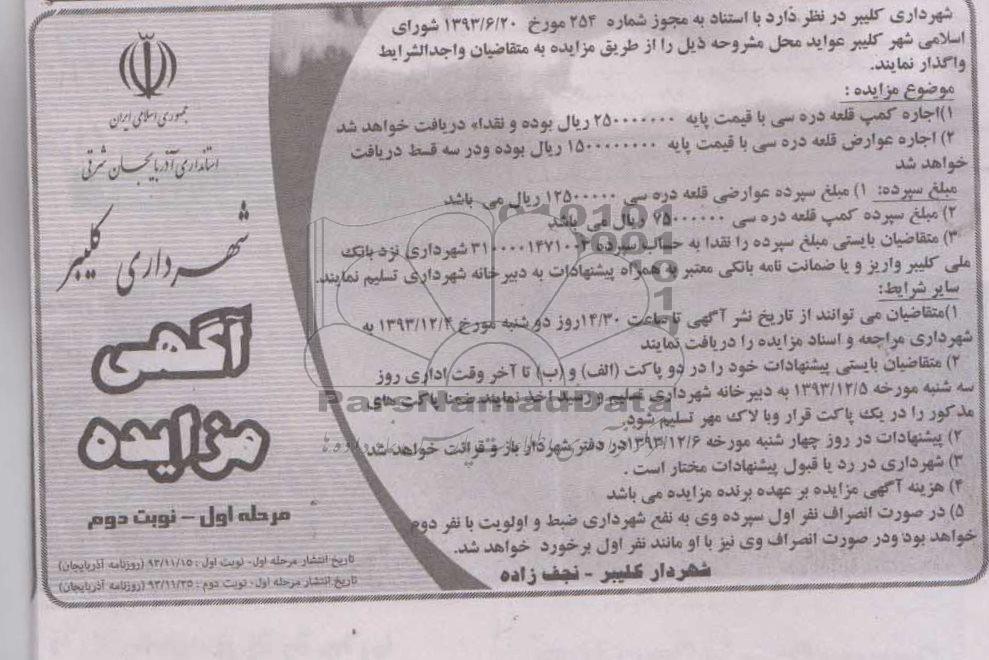 شهرداری کلیبر در نظر دارد با استناد به مجوز شماره ۲۵۴ مورخ ۱۳۹۳/۶/۲۰ شورای
اسلامی شهر کلیبر عواید محل مشروحه ذیل را از طریق مزایده به متقاضیان واجدالشرایط
واگذار نمایند.
موضوع مزایده :
۱)اجاره کمپ قلعه دره سی با قیمت پایه ۲۵۰۰۰۰۰۰۰ ریال بوده و نقداً دریافت خواهد شد
۲) اجاره عوارض قلعه دره سی با قیمت پایه ۱۵۰۰۰۰۰۰۰۰ ریال بوده ودر سه قسط دریافت
خواهد شد
مبلغ سپرده: ۱) مبلغ سپرده عوارضی قلعه دره سی ۱۲۵۰۰۰۰۰ ریال می باشد
۲) مبلغ سپرده کمپ قلعه دره سی ۷۵۰۰۰۰۰۰ ریال می باشد
۳) متقاضیان بایستی مبلغ سپرده را نقدا به حساب سپرده ۳۱۰۰۰۰۱۴۷۱۰۰۲ شهرداری نزد بانک
ملی کلیبر واریز و یا ضمانت نامه بانکی معتبر به همراه پیشنهادات به دبیرخانه شهرداری تسلیم نمایند.
سایر شرایط:
۱)متقاضیان می توانند از تاریخ نشر آگهی تا ساعت ۱۴/۳۰روز دو شنبه مورخ ۱۳۹۳/۱۲/۴ به
شهرداری مراجعه و اسناد مزایده را دریافت نمایند
۲) متقاضیان بایستی پیشنهادات خود را در دو پاکت (الف) و (ب) تا آخر وقت اداری روز
سه شنبه مورخه ۱۳۹۳/۱۲/۵ به دبیرخانه شهرداری تسلیم و رسید اخذ نمایند ضمنا پاکت های
مذکور را در یک پاکت قرار وبا لاک مهر تسلیم شود.
۲) پیشنهادات در روز چهار شنبه مورخه ۱۳۹۳/۱۲/۶در دفتر شهردار باز و قرائت خواهد شد
۳) شهرداری در رد یا قبول پیشنهادات مختار است .
۴) هزینه آگهی مزایده بر عهده برنده مزایده می باشد
۵) در صورت انصراف نفر اول سپرده وی به نفع شهرداری ضبط و اولویت با نفر دوم
خواهد بود ودر صورت انصراف وی نیز با او مانند نفر اول برخورد خواهد شد.
شهردار کلیبر - نجف زاده
جمهوری اسلامی ایران
استانداری آذربایجان شرقی
شهرداری کلیبر
آگهی
مزایده
مرحله اول - نوبت دوم
تاریخ انتشار مرحله اول- نوبت اول : ۹۳/۱۱/۱۵ (روزنامه آذربایجان)
تاریخ انتشار مرحله اول- نوبت دوم : ۹۳/۱۱/۲۵ (روزنامه آذربایجان)
ParsNamadData